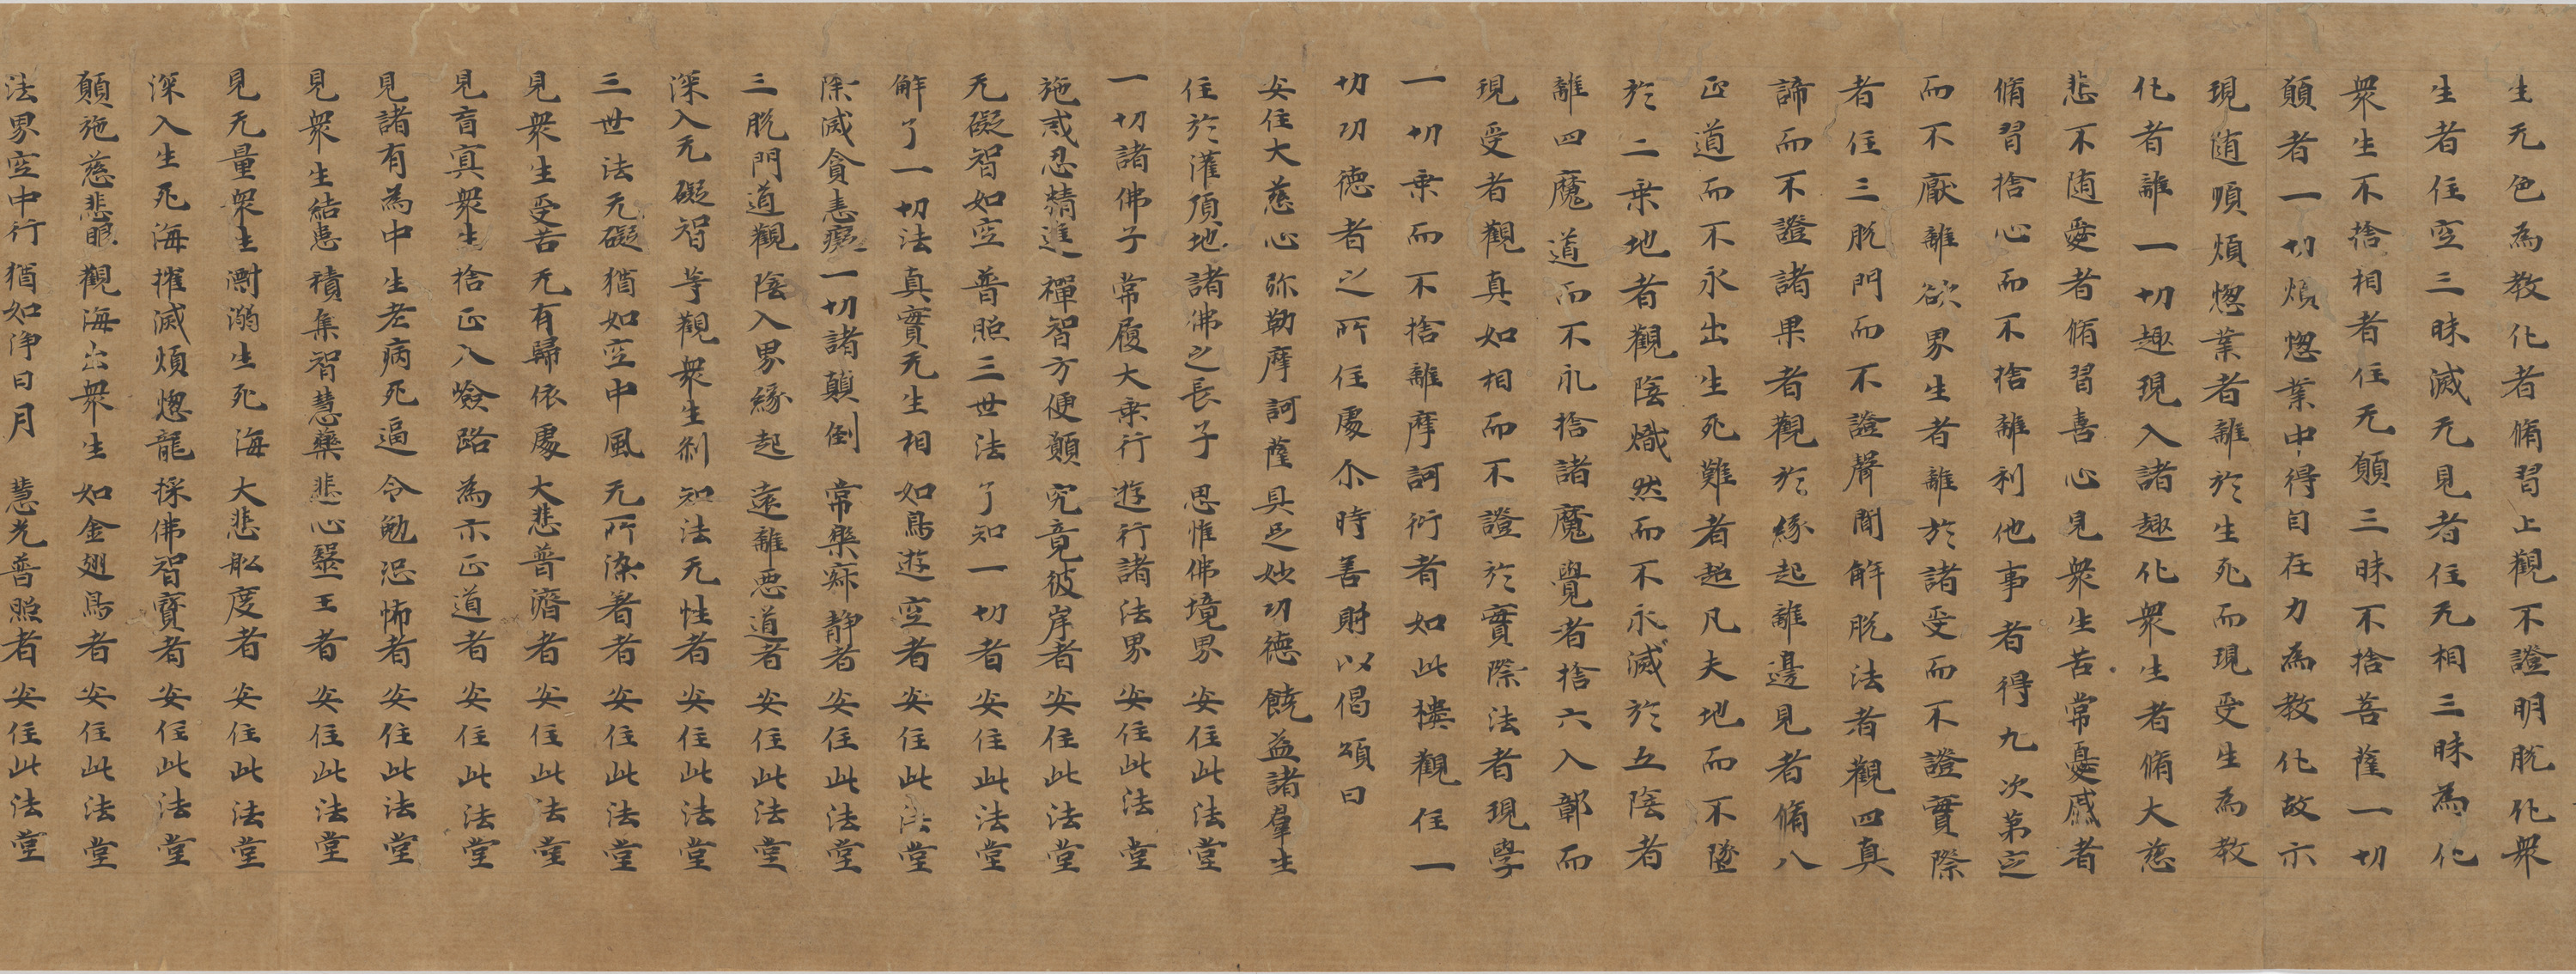 生无色為教化者脩習上觀不證明脫化衆
生者住空三昧滅无見者住无相三昧為化
衆生不捨相者住无願三昧不捨菩薩一切
願者一切煩惚業中得自在力為教化故示
現随順煩惚業者離於生死而現受生為教
化者離一切趣現入諸趣化衆生者脩大慈
悲不随愛者脩習喜心見衆生苦常憂慼者
脩習捨心而不捨離利他事者得九次第定
而不猒離欲界生者離於諸受而不證實際
者住三脫門而不證聲聞解脫法者觀四真
諦而不證諸果者觀於緣起離邊見者脩八
正道而不永出生死難者超凡夫地而不墬
於二乗地者觀陰熾然而不永滅於五陰者
離四魔道而不永捨諸魔覺者捨六入鄣而
現受者觀真如相而不證於實際法者現學
一切乗而不捨離摩訶衍者如此樓觀住一
切功德者之所住處尒時善財以偈頌曰
安住大慈心　弥勒摩訶薩　具足妙功德　饒益諸羣生
住於灌頂地　諸佛之長子　思惟佛境界　安住此法堂
一切諸佛子　常履大乗行　遊行諸法界　安住此法堂
施戒忍精進　禪智方便願　究竟彼岸者　安住此法堂
无礙智如空　普照三世法　了知一切者　安住此法堂
解了一切法　真實无生相　如鳥遊空者　安住此法堂
除滅貪恚癡　一切諸顛倒　常樂寂靜者　安住此法堂
三脫門道觀　陰入界緣起　遠離惡道者　安住此法堂
深入无礙智　等觀衆生刹　知法无性者　安住此法堂
三世法无礙　猶如空中風　无所染著者　安住此法堂
見衆生受苦　无有歸依處　大悲普濟者　安住此法堂
見盲冥衆生　捨正入嶮路　為示正道者　安住此法堂
見諸有為中　生老病死逼　令勉恐怖者　安住此法堂
見衆生結患　積集智慧藥　悲心毉王者　安住此法堂
見无量衆生　漸溺生死海　大悲舩度者　安住此法堂
深入生死海　摧滅煩惚龍　採佛智寶者　安住此法堂
願施慈悲眼　觀海出衆生　如金翅鳥者　安住此法堂
法界空中行　猶如浄日月　慧光普照者　安住此法堂